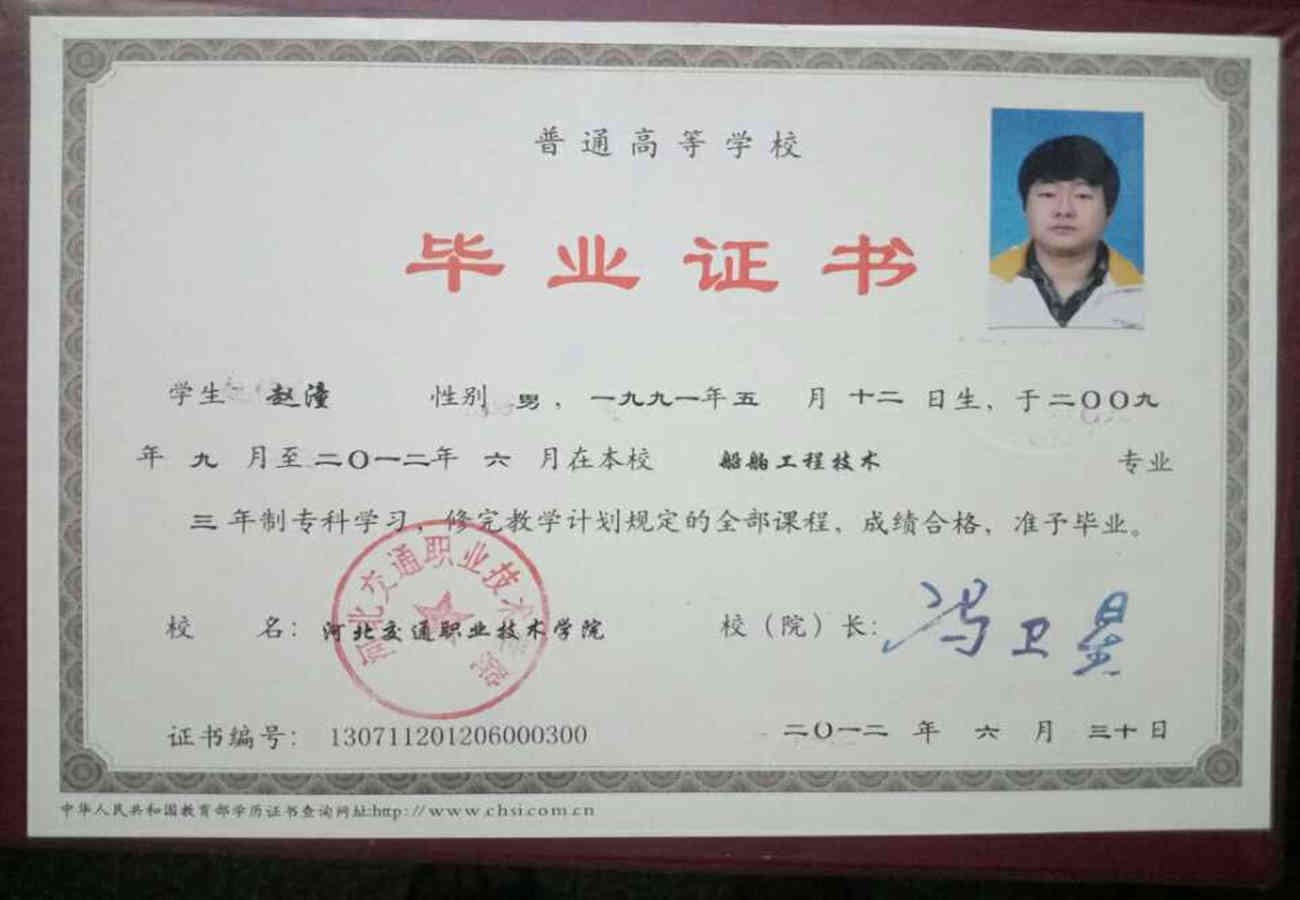 普通高等学校
毕业证书
学生 赵潼 性别 男，一九九一年五 月 十二 日生，于二〇〇九
年 九 月至二〇一二年 六 月在本校 船舶工程技术 专业
三 年制专科学习，修完教学计划规定的全部课程，成绩合格，准予毕业。
河北交通职业技术学院
校 名：河北交通职业技术学院 校（院）长：冯卫星
证书编号： 130711201206000300 二〇一二 年 六 月 三十日
中华人民共和国教育部学历证书查询网址:http://www.chsi.com.cn